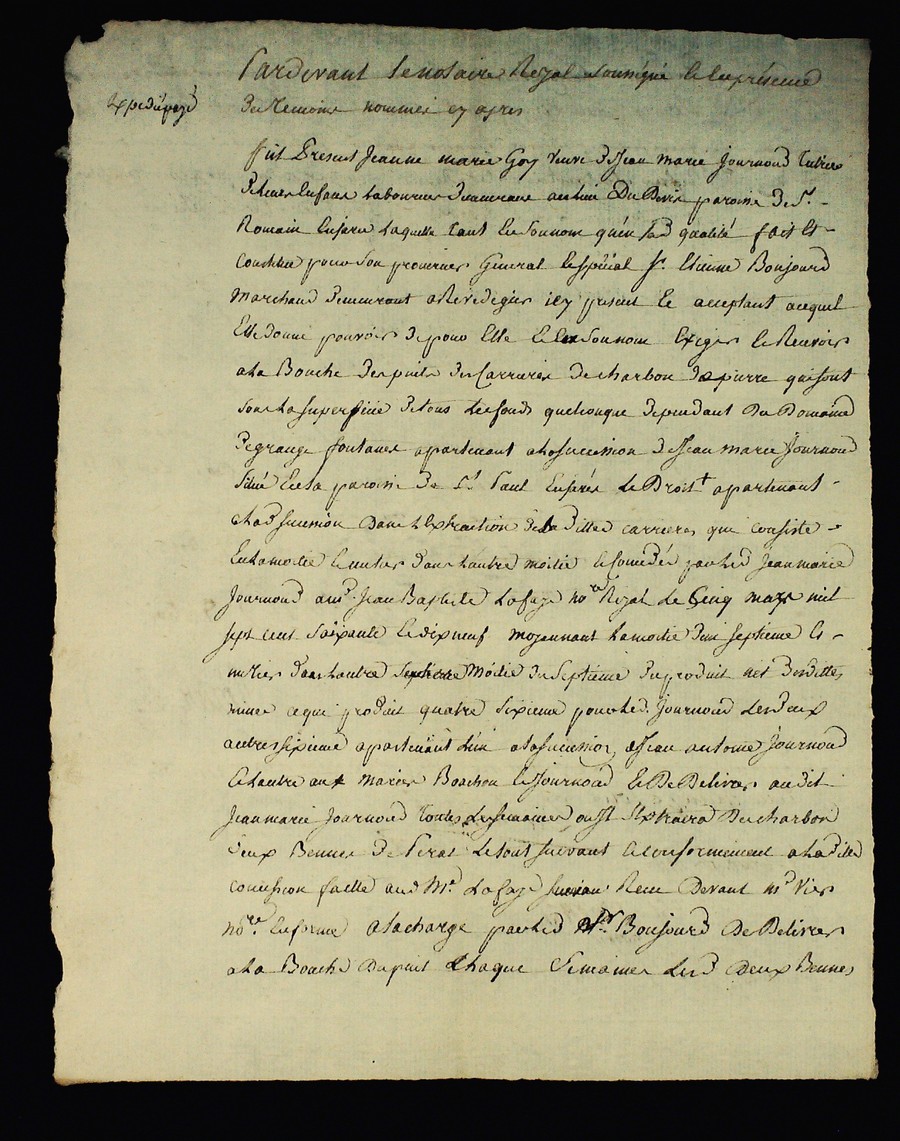 Pardevant le notaire Royal soussigné et en présence
expedié payé
des temoins nommés cy apres
fut Presente Jeanne marie Goy veuve de Jean marie Journoud tutrice
de leurs Enfans Laboureur demeurant au lieu Du paroisse de St
Romain En jarez Laquelle tant En son nom qu'én lad qualité fait Et
constitue pour son procureur General Et spécial Sr Etienne Bonjourd
Marchand Demeurant a Rivedegier icy present Et acceptant auquel
Elle donne pouvoir de pour Elle Et En son nom Exiger Et Recevoir
a La Bouche des puits des Carrieres de charbon de pierre qui sont
sous La superficie de tous Les fonds quelconque dependant Du Domaine
de grange fontanes apartenant a la succession de Jean marie Journoud
situé En la paroisse de St Paul En jarez Le Droit apartenant
a lad succession dans L'extraction de La ditte carrieres qui consiste
En La moitié Et un tiers dans L'autre moitié par led Jean marie
Journoud aud Jean Baptiste Lafage nore Royal Le Cinq mars mil
sept cent soixante Et dix neuf moyennant La moitié d'un septieme Et
un tiers dans L'autre Moitié du septieme du produit net desdittes
mines ce qui produit quatre sixieme pour led. Journoud Les deux
autres sixieme apartenant L'un a la succession de Jean antoine Journoud
Et L'autre aux mariés Bonchon Et Journoud Et De Delivrer audit
Jean marie Journoud toutes Les semaines ou Il s'extraira Du charbon
deux Bennes de Perat Le tout suivant Et conformement a La ditte
concession faitte aud Mr Lafage Recu Devant Mr
nore. En forme a la charge par led Sr. Bonjourd De Delivrer
a La Bouche du puit Chaque Semaines Lesd Deux Bennes